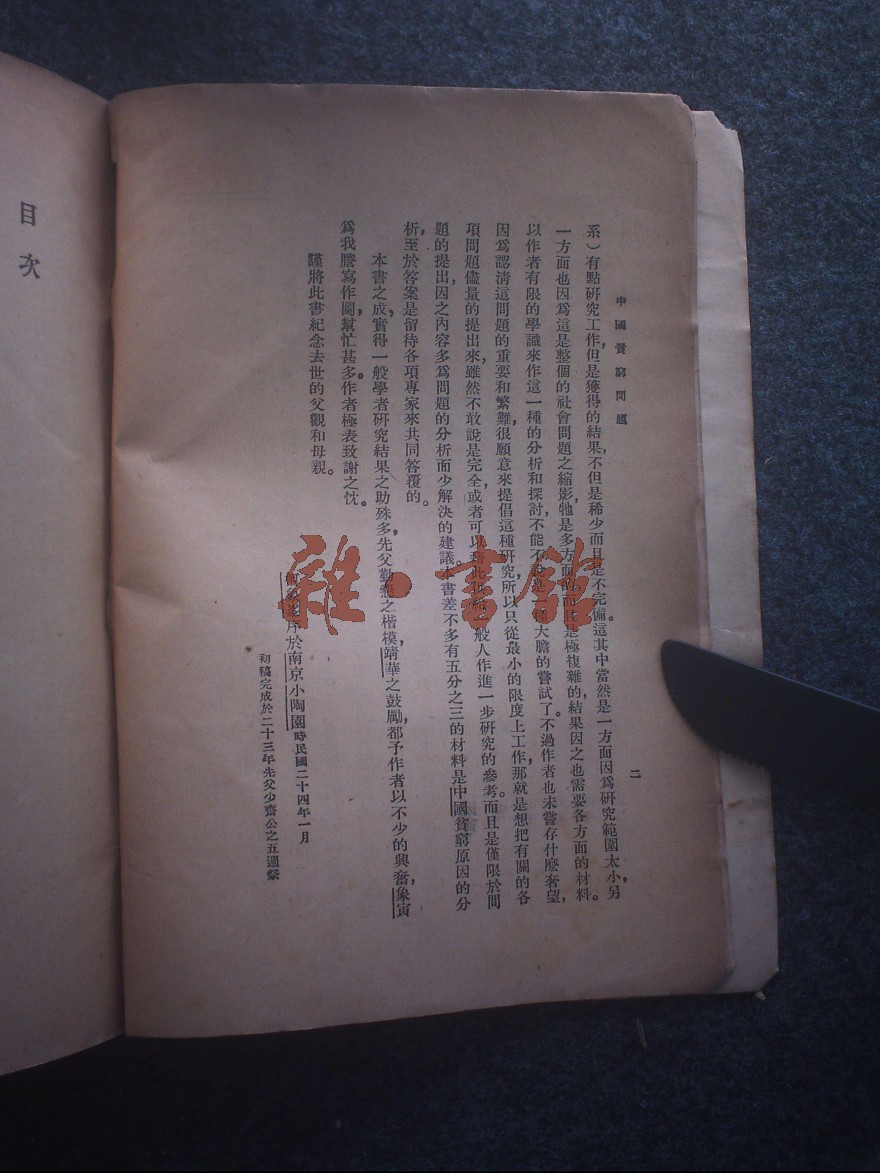 中國貧窮問題
二
系)有點研究工作,但是獲得的結果,不但是稀少而且是不完備。這其中當然是一方面因爲研究範圍太小,另
一方面也因爲這是整個的社會問題之縮影,牠是多方面的而且是極複雜的結果因之也需要各方面的材料。
以作者有限的學識來作這一種的分析和探討,不能不說是一種大膽的嘗試了。不過作者也未嘗存什麼奢望,
因爲認清這問題的重要和繁難,很願意來提倡這種研究所以只從最小的限度上工作,那就是想把有關的各
項問題儘量的提出來,雖然不敢說是完全,或者可以藉此供給一般人作進一步研究的參考。而且是僅限於問
題的提出,因之內容多爲問題的分析而少解決的建議。本書差不多有五分之三的材料是中國貧窮原因的分
析,至於答案是留待各項專家來共同答覆的。
本書之成,實得一般學者研究結果之助殊多,先父勤懇之楷模,靖華之鼓勵,都予作者以不少的興奮,象寅
爲我謄寫作圖,幫忙甚多。作者極表致謝之忱。
謹將此書紀念去世的父觀和母親。
序於南京小陶園時民國二十四年一月
初稿完成於二十三年先父少齋公之五週祭
目次
雜·書館